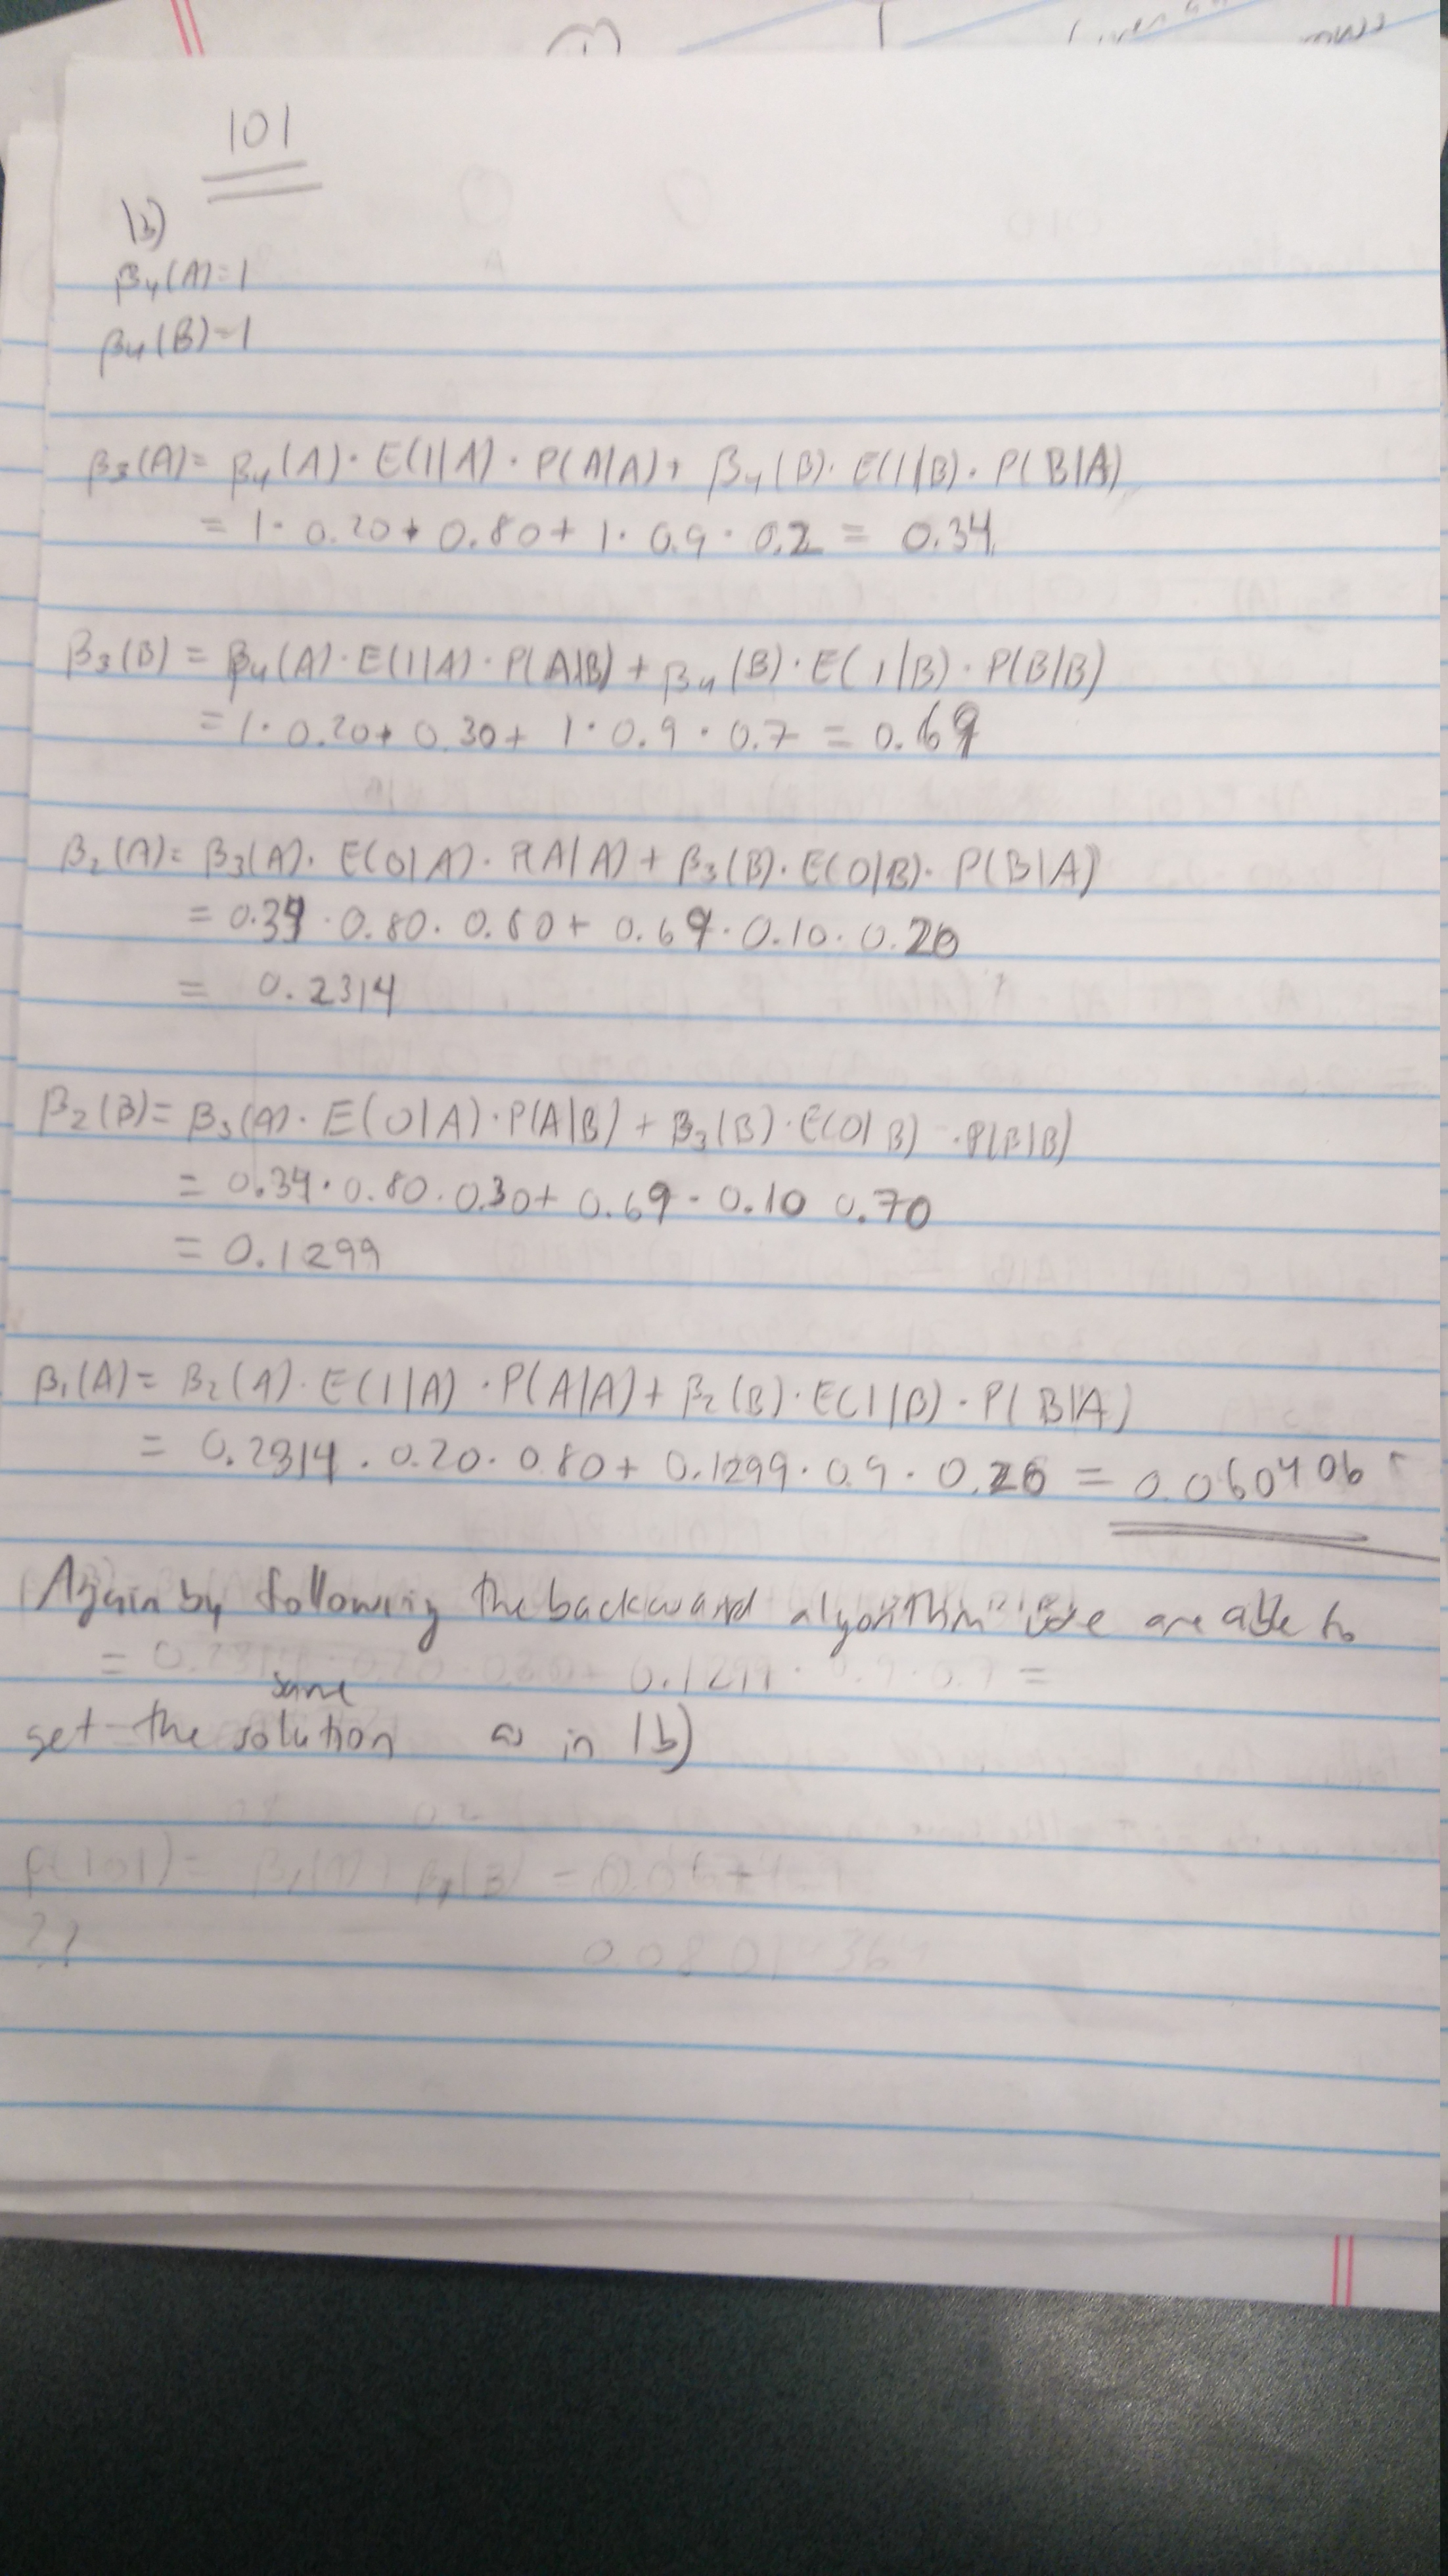 101
b)
β₄(A)=1
β₄(B)=1
β₃(A)= β₄(A)· E(1|A) · P(A|A)+ β₄(B)· E(1|B)· P(B|A)
= 1· 0.20 · 0.80+ 1· 0.9 · 0.2 = 0.34
β₃(B) = β₄(A)·E(1|A)·P(A|B) + β₄(B)·E(1|B)·P(B|B)
= 1· 0.20 · 0.30+ 1· 0.9 · 0.7 = 0.69
β₂(A)= β₃(A)· E(0|A)· P(A|A) + β₃(B)·E(0|B)· P(B|A)
= 0.34 · 0.80 · 0.80+ 0.69 · 0.10 · 0.20
= 0.2314
β₂(B)= β₃(A)· E(0|A)·P(A|B) + β₃(B)·E(0|B) ·P(B|B)
= 0.34 · 0.80 · 0.30+ 0.69 · 0.10 0.70
= 0.1299
β₁(A)= β₂(A)· E(1|A) ·P(A|A)+ β₂(B)·E(1|B) · P(B|A)
= 0.2314 . 0.20 · 0.80+ 0.1299 · 0.9 · 0.20 = 0.060406
Again by following the backward algorithm we are able to
same
get the solution as in 1b)